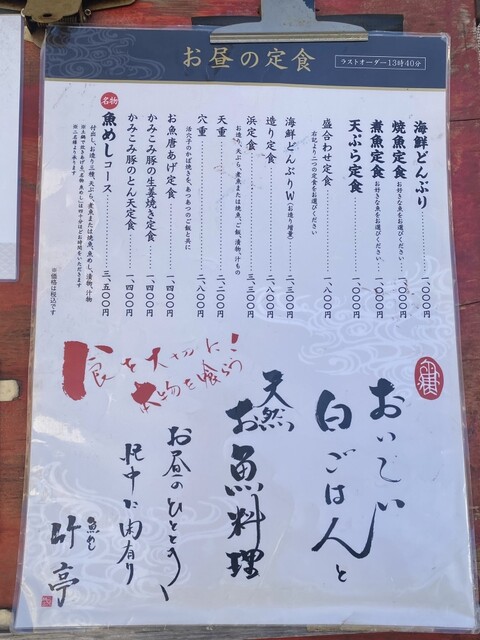 お昼の定食
ラストオーダー13時40分
海鮮どんぶり
焼魚定食 お好きな魚をお選びください
煮魚定食 お好きな魚をお選びください
天ぷら定食
盛合わせ定食 一、八〇〇円
右記より二つの定食をお選びください
海鮮どんぶりW（お造り増量） 二、三〇〇円
造り定食 二、八〇〇円
浜定食 三、三〇〇円
お造り、天ぷら、煮魚または焼魚、ご飯、漬物、汁もの
天重 二、二〇〇円
穴重 二、八〇〇円
活穴子のかば焼きを、あつあつのご飯と共に
お魚唐あげ定食 一、四〇〇円
かみこみ豚の生姜焼き定食 一、四〇〇円
かみこみ豚のとん天定食 一、四〇〇円
名物
魚めしコース 三、五〇〇円
付出し、お造り三種、天ぷら、煮魚または焼魚、魚めし、漬物、汁物
※二名様より承ります
※価格は税込です
食を大切に!
本物を喰らう
おいしい
白ごはんと
天然
お魚料理
お昼のひととき
忙中に閑有り
魚めし
竹亭